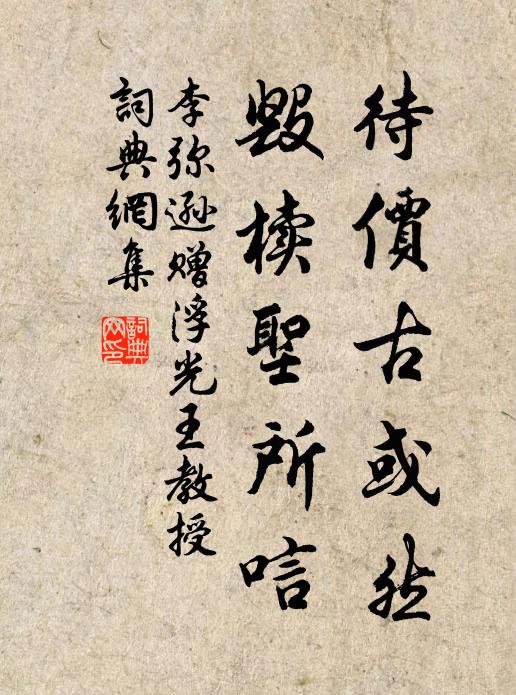 待價古或然
毀櫝聖所唁
李弥遜贈浮光王教授
詞典網集
詞典網印